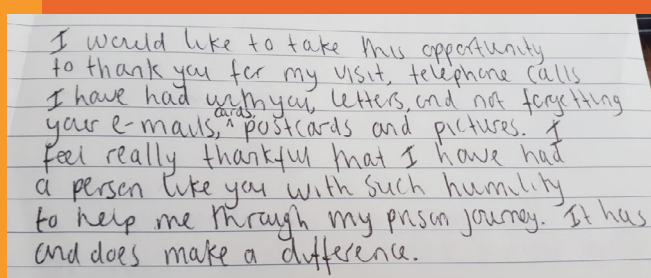 I would like to take this opportunity
to thank you for my visit, telephone calls
I have had with you, letters, and not forgetting
your e-mails, cards, postcards and pictures. I
feel really thankful that I have had
a person like you with such humility
to help me through my prison journey. It has
and does make a difference.